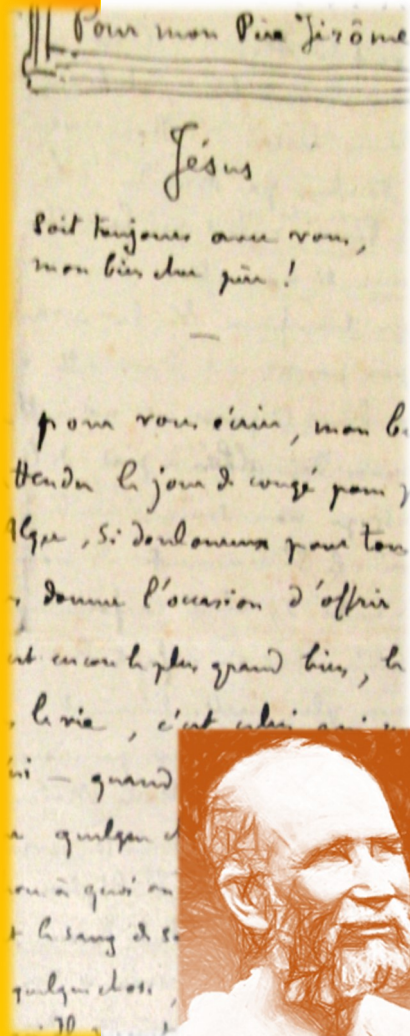 Pour mon Père Jérôme
Jésus
soit toujours avec vous,
mon bien cher père !
pour vous écrire, mon b
ttendu le jour de congé pour
Alger, si douloureux pour
donne l'occasion d'offrir
encore le plus grand bien, le
la vie, c'est celui qui
quand
quelque
à quoi on
le sang de
quelque chose,